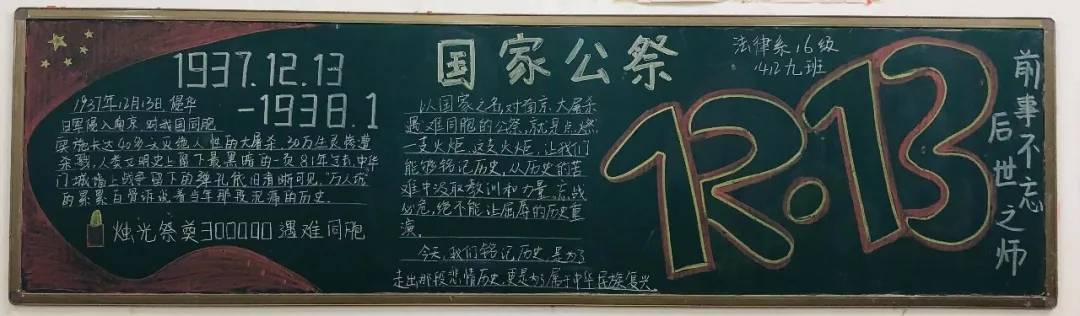 1937.12.13
-1938.1
1937年12月13日,侵华
日军侵入南京,对我国同胞
实施长达40多天灭绝人性的大屠杀,30万生灵惨遭
杀戮,人类文明史上留下最黑暗的一页.81年过去,中华
门城墙上战争留下的弹孔依旧清晰可见,“万人坑”
的累累白骨诉说着当年那段沉痛的历史.
烛光祭奠300000遇难同胞
国家公祭
以国家之名,对南京大屠杀
遇难同胞的公祭,就是点燃
一支火炬.这支火炬,让我们
能够铭记历史,从历史的苦
难中汲取教训和力量.忘战
必危,绝不能让屈辱的历史重
演。
今天,我们铭记历史,是为了
走出那段悲情历史,更是为了属于中华民族复兴。
法律系16级
1412九班
12.13
前事不忘
后世之师